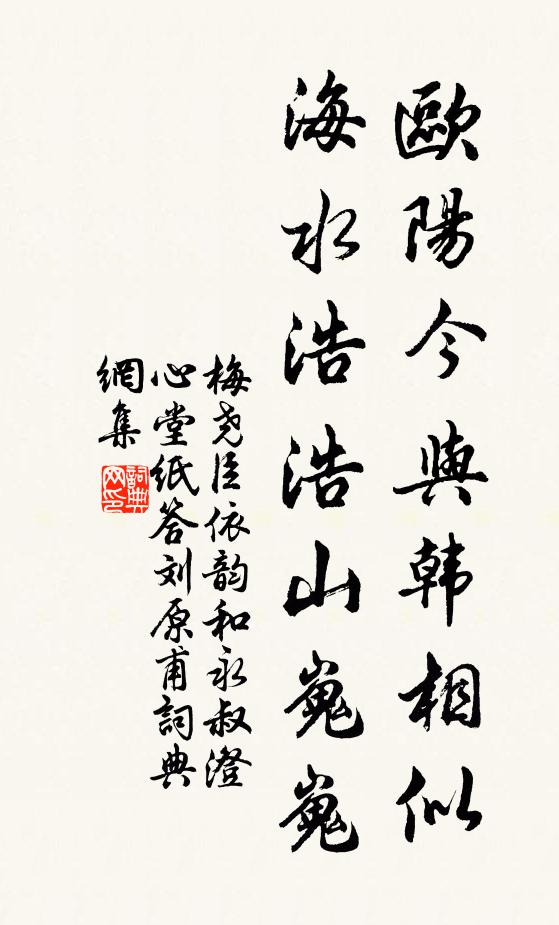 歐陽今與韩相似
海水浩浩山嵬嵬
梅尧臣依韵和永叔澄
心堂纸答刘原甫詞典
網集
詞典
网印